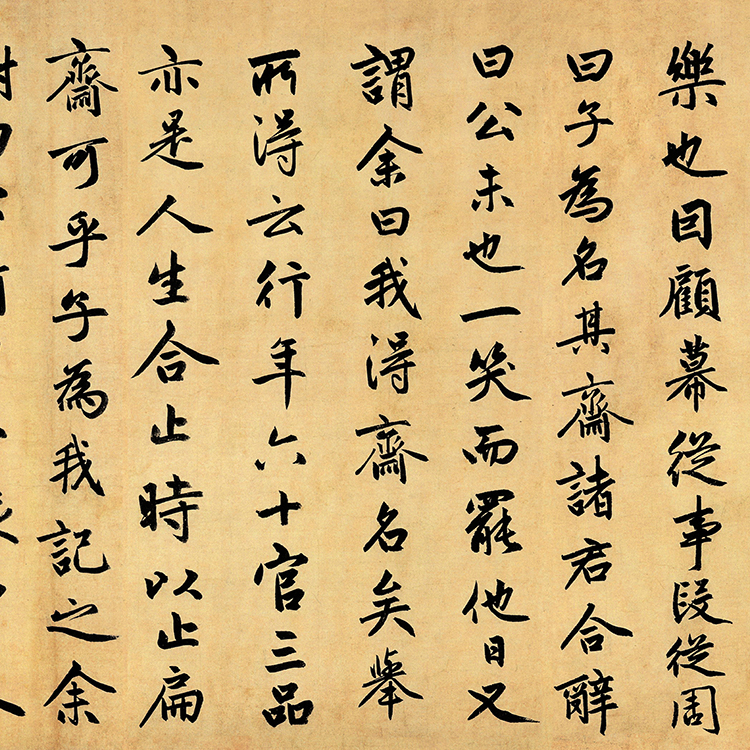 樂也回顧幕從事段從周
曰子為名其齋諸君合辭
曰公未也一笑而罷他日又
謂余曰我得齋名矣舉
所得云行年六十官三品
亦是人生合止時以止扁
齋可乎子為我記之余